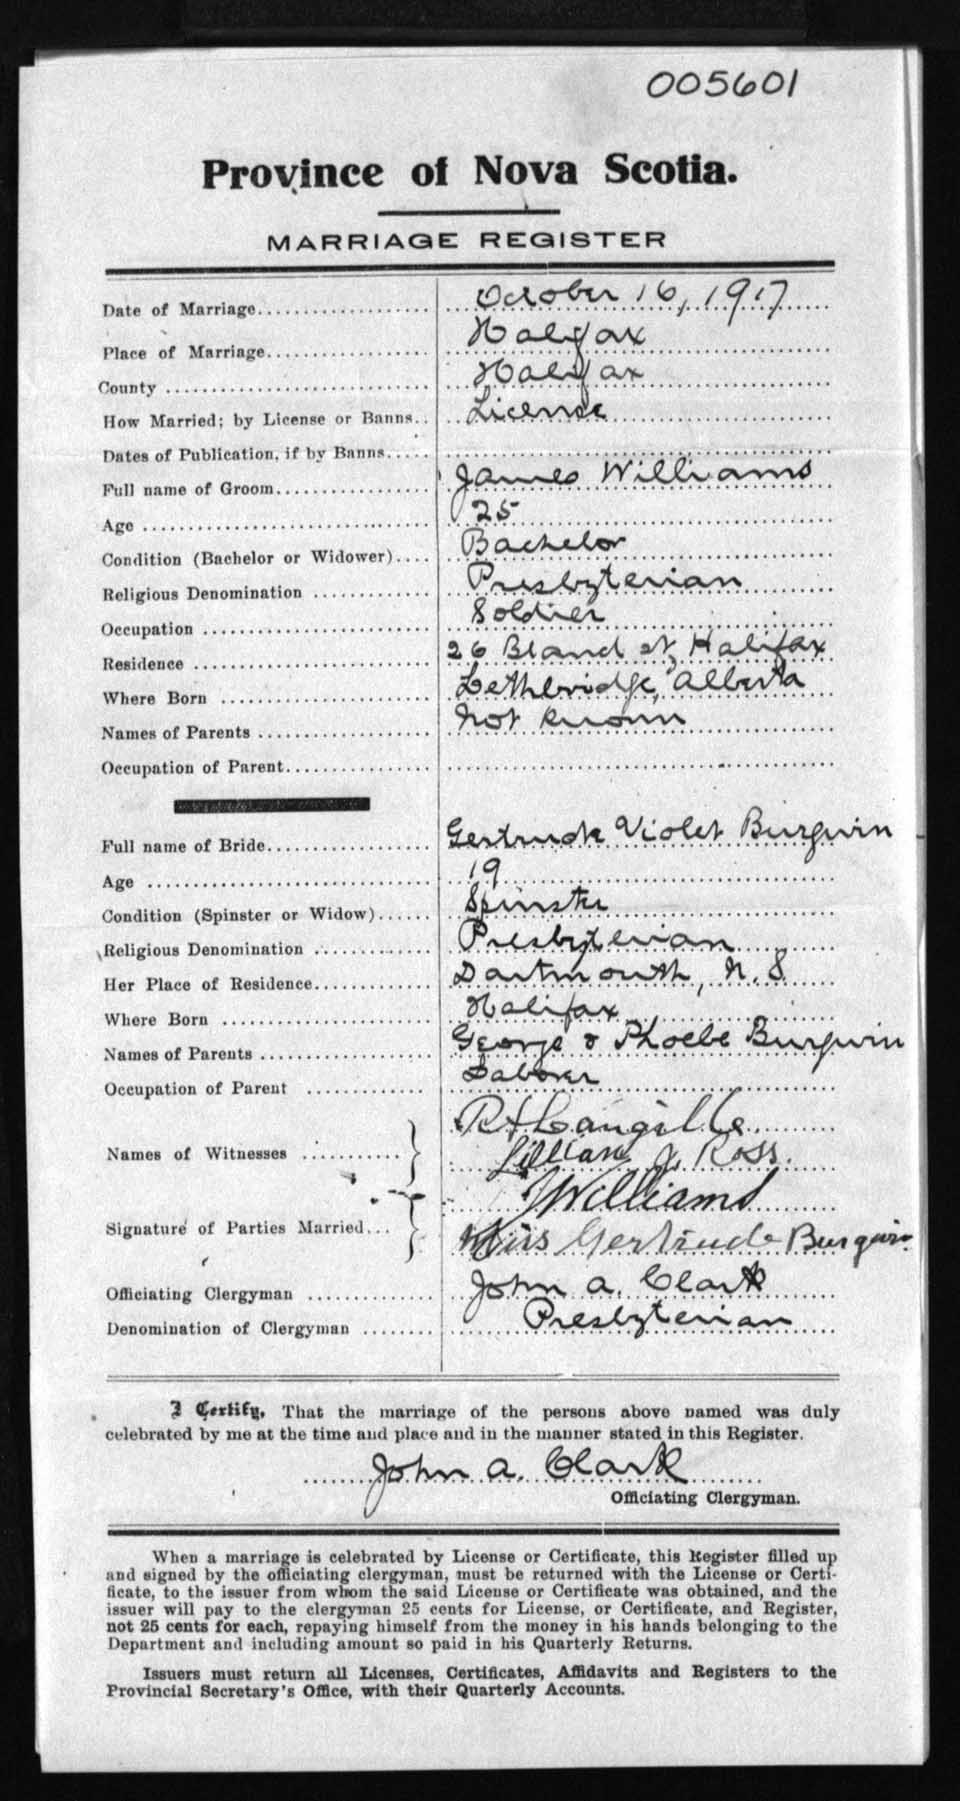 005601
Province of Nova Scotia.
MARRIAGE REGISTER
Date of Marriage October 16, 1917
Place of Marriage Halifax
County Halifax
How Married; by License or Banns License
Dates of Publication, if by Banns
Full name of Groom James Williams
Age 25
Condition (Bachelor or Widower) Bachelor
Religious Denomination Presbyterian
Occupation Soldier
Residence 26 Bland st, Halifax
Where Born Lethbridge, Alberta
Names of Parents Not known
Occupation of Parent
Full name of Bride Gertrude Violet Burgwin
Age 19
Condition (Spinster or Widow) Spinster
Religious Denomination Presbyterian
Her Place of Residence Dartmouth, N. S
Where Born Halifax
Names of Parents George & Phoebe Burgwin
Occupation of Parent Laborer
R H Langille
Names of Witnesses Lillian J. Ross.
J Williams
Signature of Parties Married Miss Gertrude Burgwin
Officiating Clergyman John A. Clark
Denomination of Clergyman Presbyterian
I Certify, That the marriage of the persons above named was duly
celebrated by me at the time and place and in the manner stated in this Register.
John A. Clark
Officiating Clergyman.
When a marriage is celebrated by License or Certificate, this Register filled up
and signed by the officiating clergyman, must be returned with the License or Certi-
ficate, to the issuer from whom the said License or Certificate was obtained, and the
issuer will pay to the clergyman 25 cents for License, or Certificate, and Register,
not 25 cents for each, repaying himself from the money in his hands belonging to the
Department and including amount so paid in his Quarterly Returns.
Issuers must return all Licenses, Certificates, Affidavits and Registers to the
Provincial Secretary's Office, with their Quarterly Accounts.